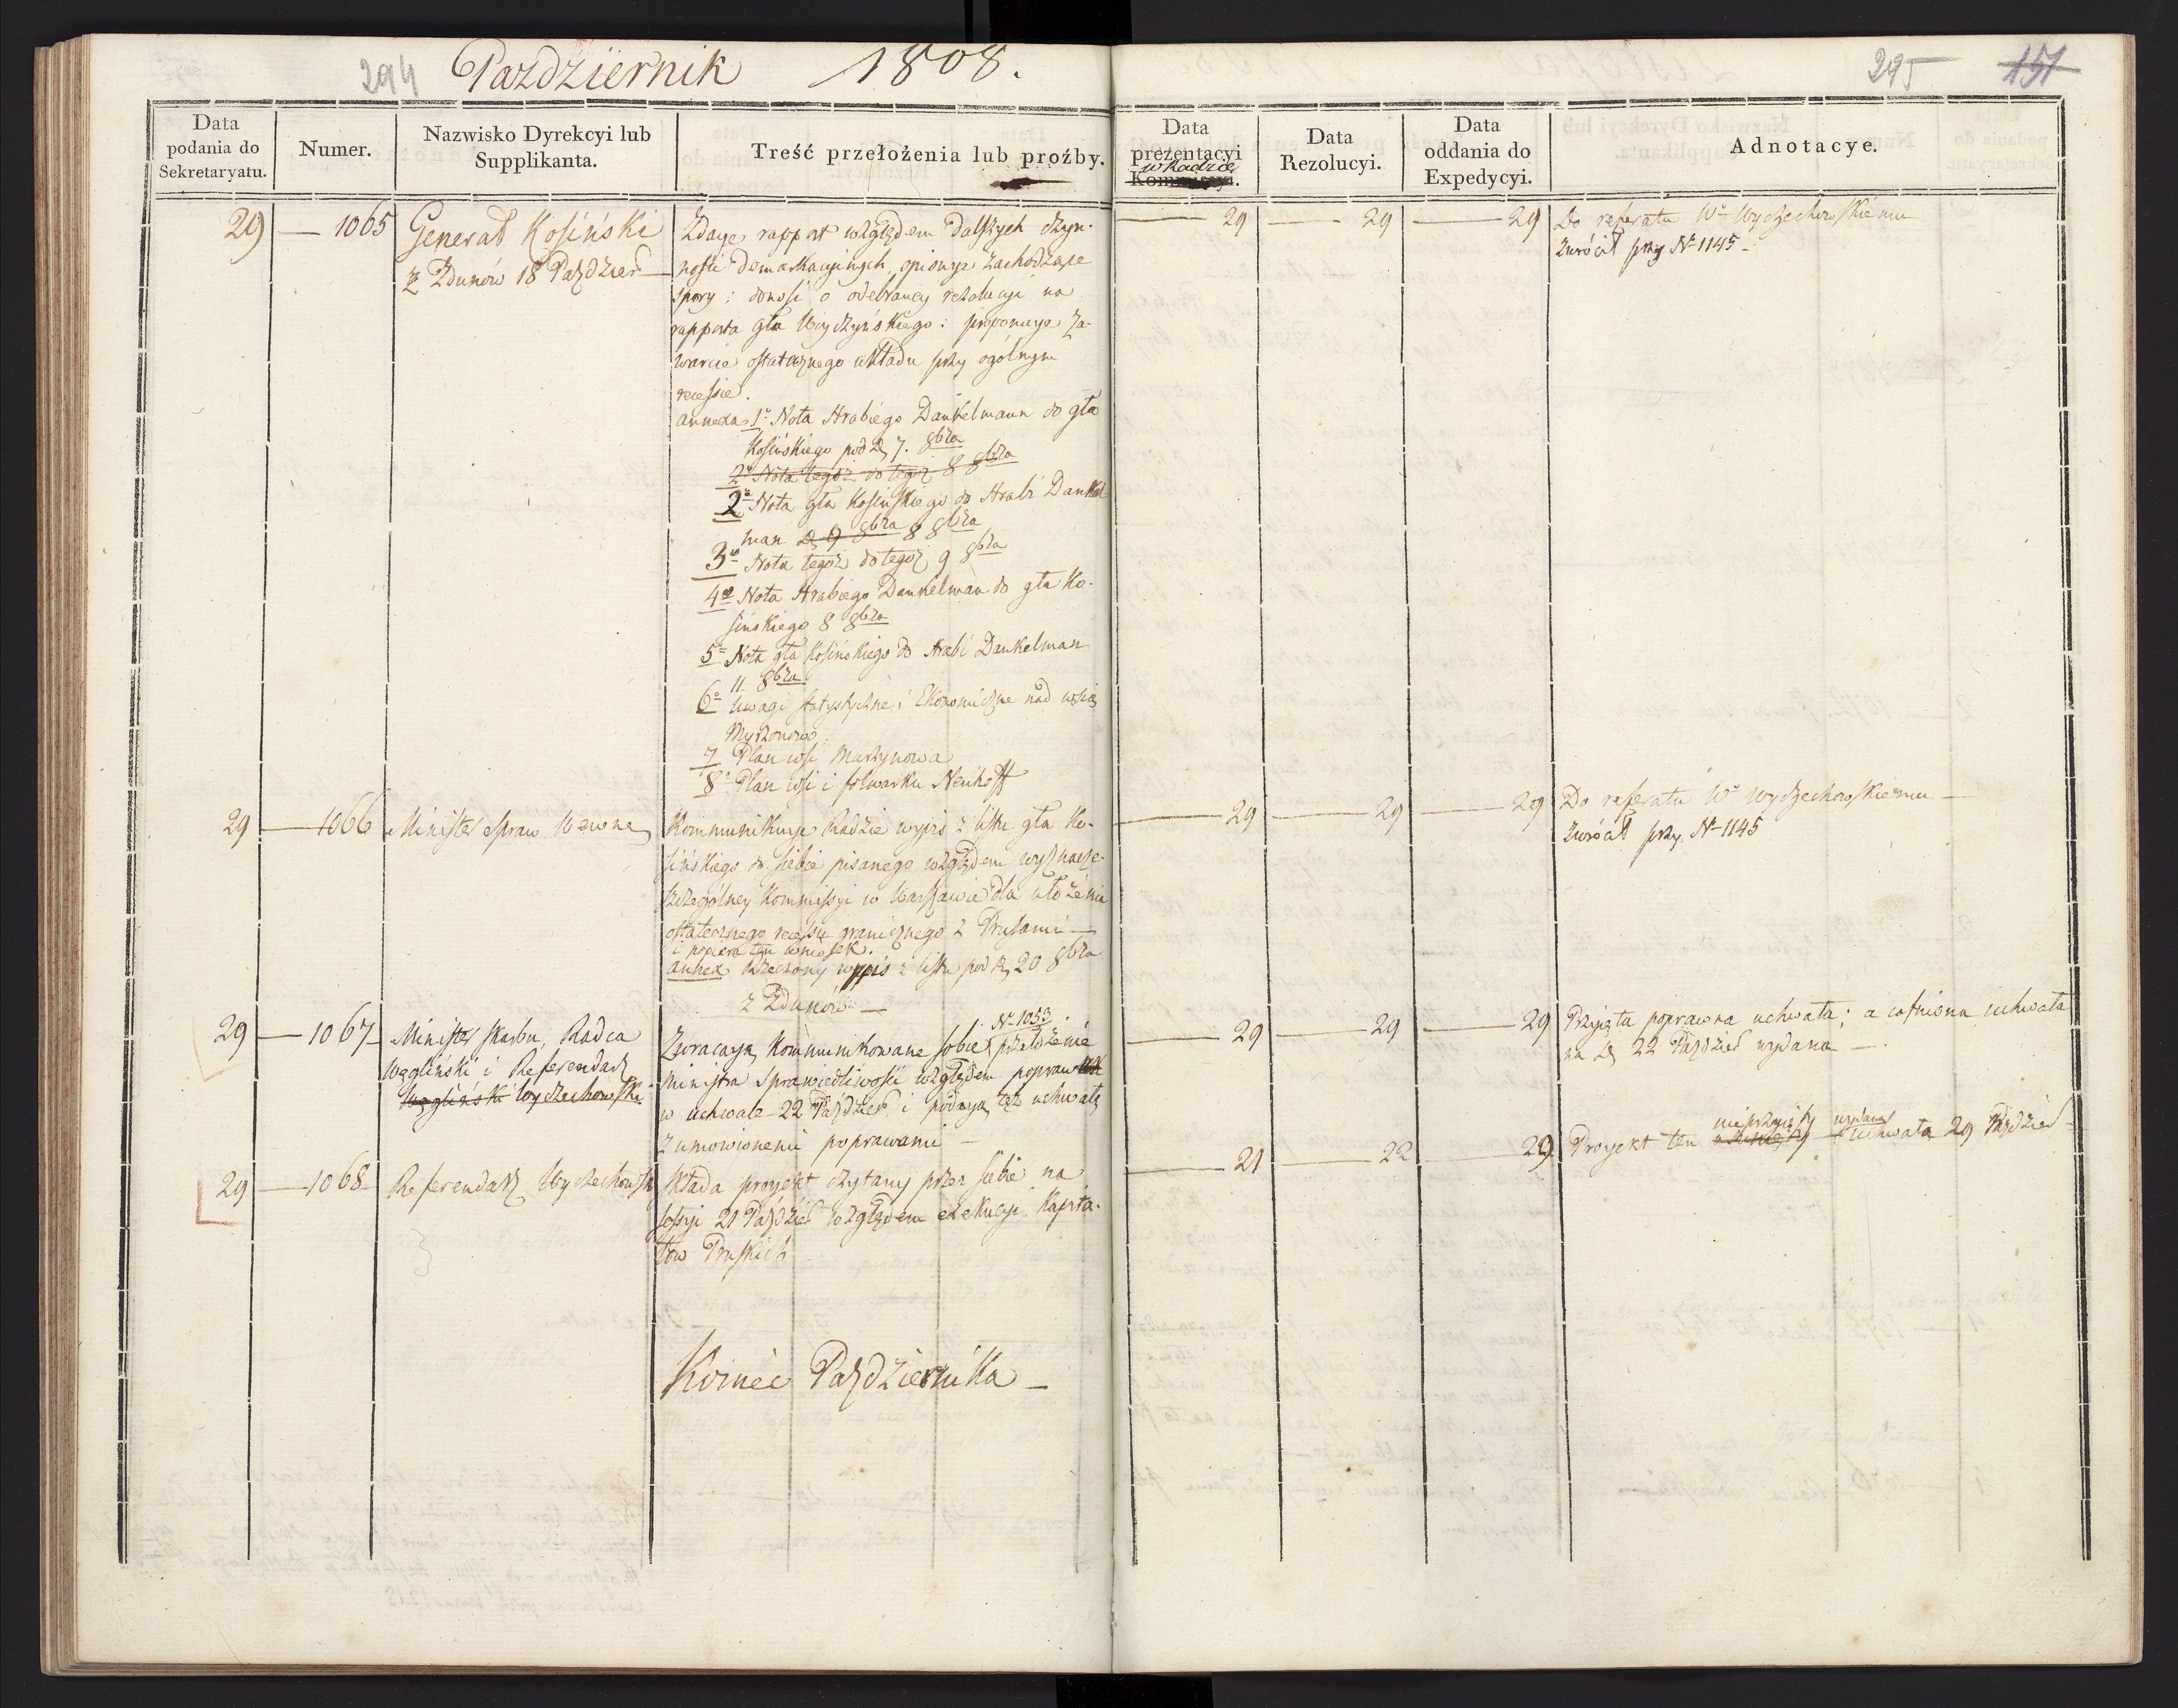 294 Pazdziernik 1808.
295 151
Data podania do Sekretaryatu.
Numer.
Nazwisko Dyrekcyi lub Supplikanta.
Treść przełożenia lub proźby.
Data prezentacyi w Radzie Kommissyi.
Data Rezolucyi.
Data oddania do Expedycyi.
Adnotacye.
29 — 1065
Generał Kosiński
z Zdunów 18 Paździer
Zdaye rapport względem dalszych czyn-
ności demarkacyinych, opisuye zachodzące
spory; donosi o odebraney rezolucyi na
rapporta gła Woyczyńskiego: proponuye za-
warcie ostatecznego układu przy ogólnym
recessie.
annexa 1o Nota Hrabiego Dankelmann do gła
Kosińskiego pod d. 7. 8bra
2o Nota tegoż do tegoż 8 8bra
2o Nota gła Kosińskiego do Hrabi Dankel
man d. 9 8bra 8 8bra
3o Nota tegoż do tegoż 9 8bra
4o Nota Hrabiego Dankelman do gła Ko-
sińskiego 8 8bra
5o Nota gła Kosińskiego do Hrabi Dankelman
11. 8bra
6o Uwagi statystyczne i Ekonomiczne nad wsią
7 Plan wsi Marzynowa
8o Plan wsi i folwarku Neuhoff
— 29 — 29 — 29
Do referatu Wo Wyczechowskiemu
zwrócił przy No 1145 —
29 — 1066
Minister Spraw Wewne
Kommunikuye Radzie wypis z listu gła Ko-
sińskiego do siebie pisanego względem wyznacze-
szczególney Kommissyi w Warszawie dla ułożenia
ostatecznego recessu granicznego z Prusami —
i popiera ten wniosek.
annex Rzeczony wypis z listu pod d. 20 8bra
z Zdunów —
— 29 — 29 — 29
Do referatu Wo Wyczechowskiemu —
zwrócił przy No 1145
29 — 1067
Minister Skarbu, Radca
Węgliński i Referendarz
Węgliński Wyczechowski
No 1053.
Zwracaią kommunikowane sobie przełożenie
Ministra Sprawiedliwości względem popraw
w uchwale 22 Paździer i podaią też uchwałę
z umowionemi poprawami —
— 29 — 29 — 29
Przyięta poprawna uchwała; a cofniona uchwała
na d. 22 Paździer wydana —
29 — 1068
Referendarz Wyczechowski
Składa proyekt czytany przez siebie na
sessyi 21 Paździer względem exekucyi Kapita-
łów Pruskich
— 21 — 22 — 29
nieprzyięty wydana
Proyekt ten uchwała 29 Paździer —
Koniec Października —